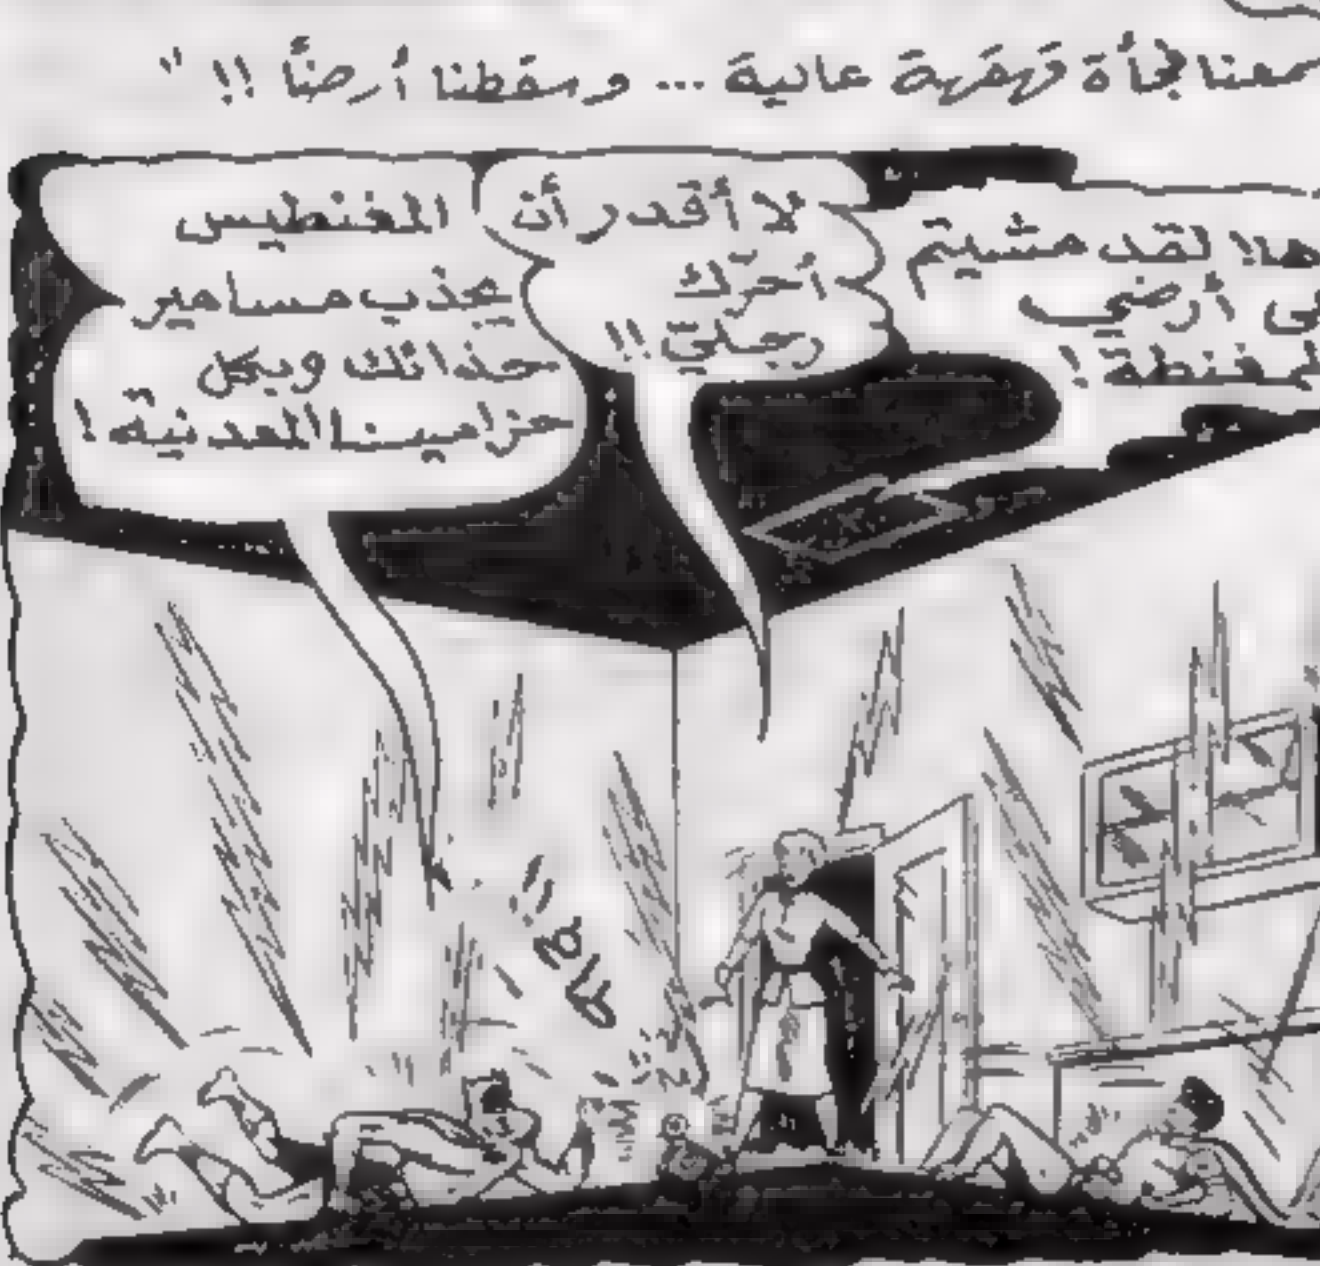 فجأة قهقهة عالية ... وسقطنا أرضاً !! "
ها! لقد مشيتم
أرضي
!
لا أقدر أن
أحرّك
رجليّ !!
المغنطيس
يجذب مسامير
حذائك وبكل
حزامينا المعدنية !
هاها !!